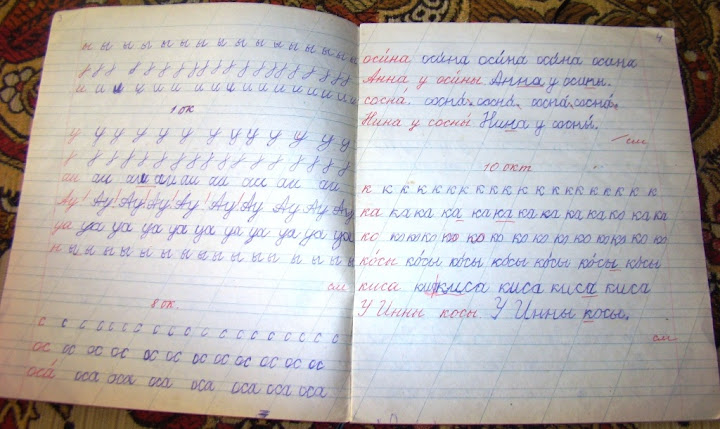 3
ы ы ы ы ы ы ы ы ы ы ы ы ы ы ы ы ы ы
и и и и и и и и и и и и и и и и и
1 ок
у у у у у у у у у у у у у у у
аи аи аи аи аи аи аи аи аи аи
Ау! Ау! Ау! Ау! Ау! Ау! Ау Ау Ау Ау
уа уа уа уа уа уа уа уа уа уа уа уа
ы ы ы ы ы ы ы ы ы ы ы ы ы ы ы ы ы
см
8 ок.
с с с с с с с с с с с с с с с с с с
ос ос ос ос ос ос ос ос ос ос ос ос
оса́ оса оса оса оса оса оса оса
4
оси́на оси́на оси́на оси́на осина
Анна у оси́ны Анна у осины.
сосна́. сосна. сосна. сосна. сосна.
Нина у сосны́ Нина у сосны́.
см
10 окт
к к к к к к к к к к к к к к к к к к к к
ка ка ка ка ка ка ка ка ка ка ка ка ка
ко ко ко ко ко ко ко ко ко ко ко ко ко
ко́сы ко́сы ко́сы ко́сы ко́сы ко́сы ко́сы
киса киса киса киса киса
У Инны косы. У Инны косы.
см